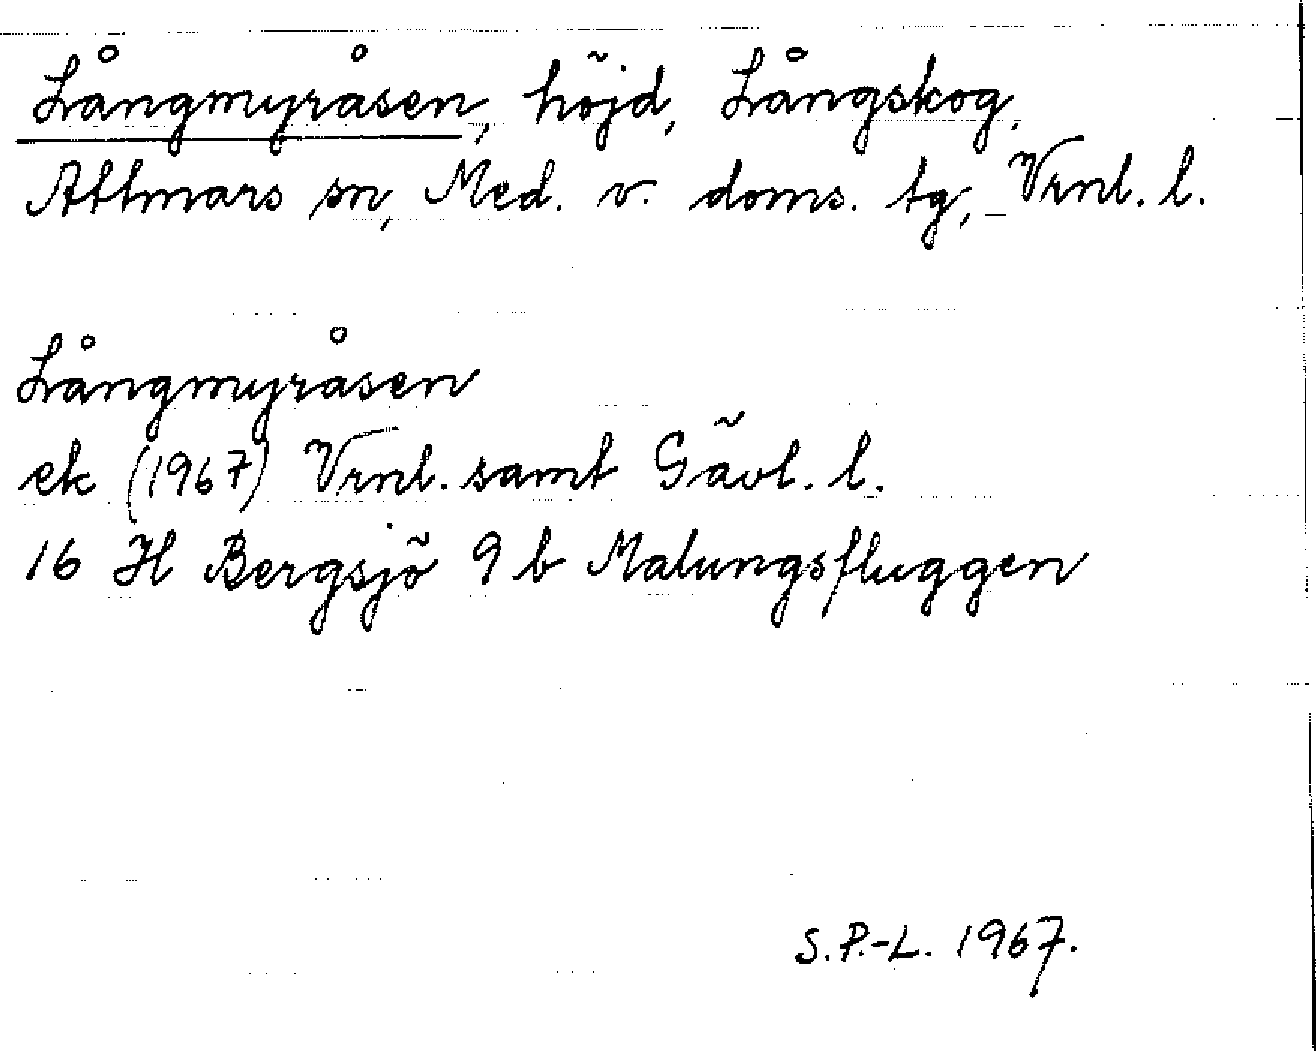 Långmyråsen, höjd, Långskog,
Attmars sn, Med. v. doms. tg, Vrnl. l.
Långmyråsen
ek (1967) Vrnl. samt Gävl. l.
16 H Bergsjö 9 b Malungsfluggen
S.P.-L. 1967.